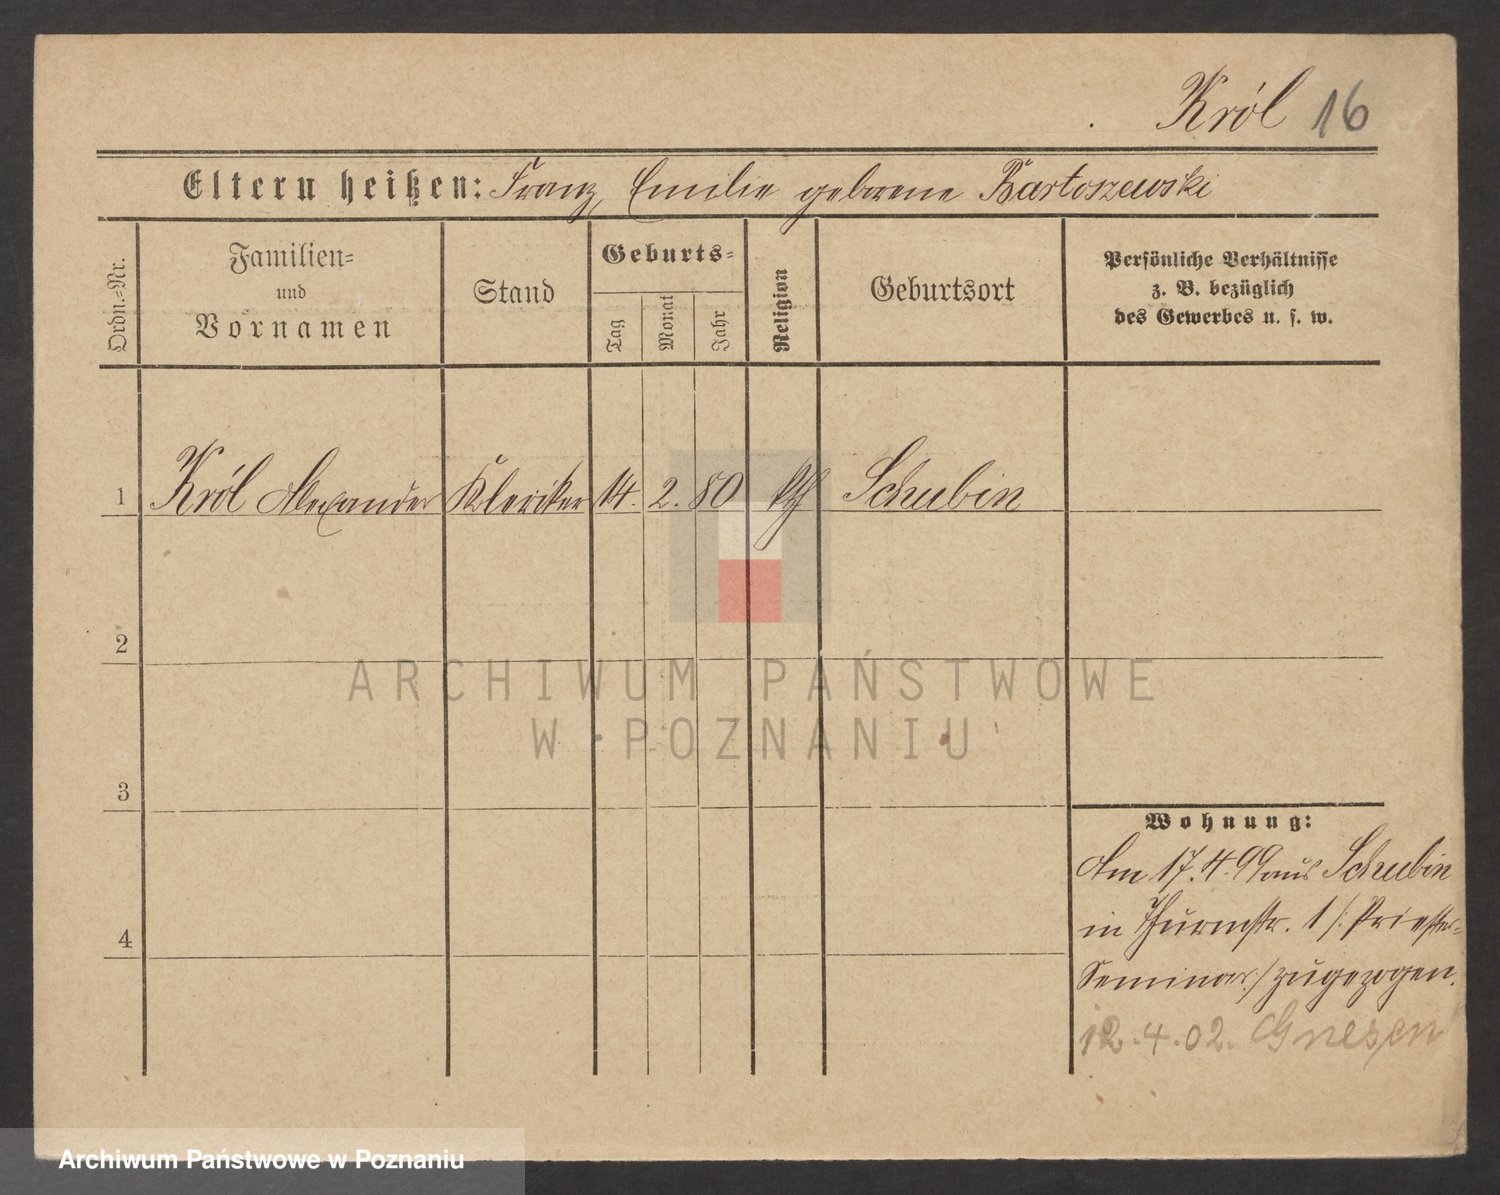 Król 16
Eltern heißen: Franz, Emilie geborene Bartoszewski
Ordn.=Nr.
Familien=
und
Vornamen
Stand
Geburts=
Tag
Monat
Jahr
Religion
Geburtsort
Persönliche Verhältnisse
z. B. bezüglich
des Gewerbes u. s. w.
1 Król Alexander Kleriker 14. 2. 80 kth Schubin
2
3
4
Wohnung:
Am 17.4.99 aus Schubin
in Thurmstr. 1 /: Priester=
Seminar :/ zugezogen.
12.4.02. Gnesen
ARCHIWUM PAŃSTWOWE
W POZNANIU
Archiwum Państwowe w Poznaniu